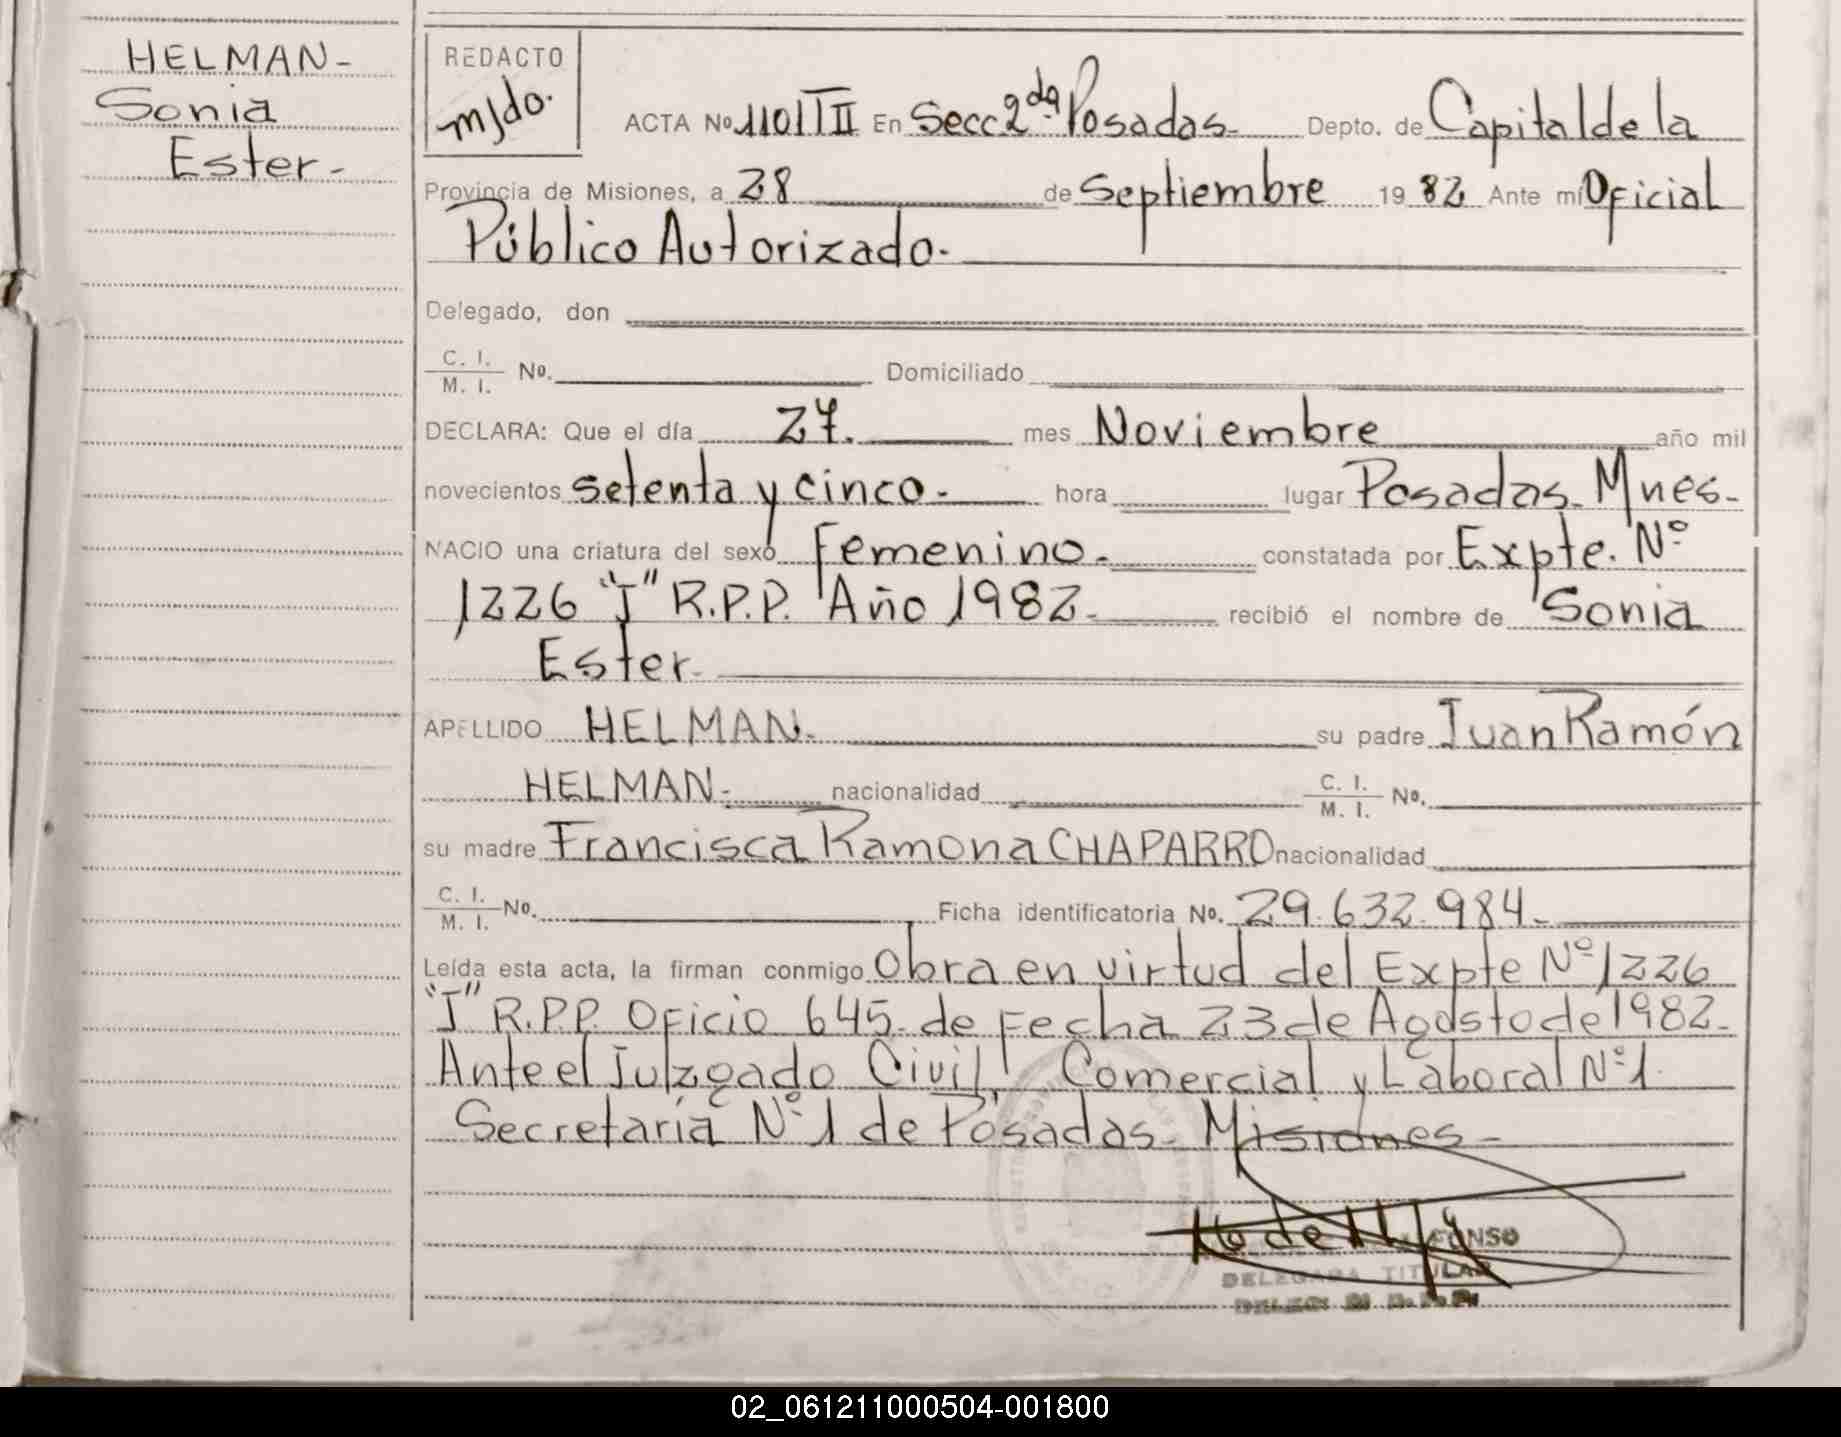 HELMAN-
Sonia
Ester-
REDACTO
m/do.
ACTA No 1101 T II En Secc 2da Posadas- Depto. de Capital de la
Provincia de Misiones, a 28 de Septiembre 19 82 Ante mí Oficial
Público Autorizado.
Delegado, don
C. I.
M. I. No. Domiciliado
DECLARA: Que el día 27. mes Noviembre año mil
novecientos setenta y cinco- hora lugar Posadas- Mnes-
NACIO una criatura del sexo Femenino- constatada por Expte. Nº
1226 "J" R.P.P. Año 1982- recibió el nombre de Sonia
Ester-
APELLIDO HELMAN- su padre Juan Ramón
HELMAN- nacionalidad C. I. M. I. No.
su madre Francisca Ramona CHAPARRO nacionalidad
C. I. M. I. No. Ficha identificatoria No. 29.632.984-
Leída esta acta, la firman conmigo Obra en virtud del Expte Nº 1226
"J" R.P.P. Oficio 645- de Fecha 23 de Agosto de 1982-
Ante el Juzgado Civil, Comercial y Laboral Nº 1
Secretaría Nº 1 de Posadas- Misiones-
DELEGADA TITULAR
02_061211000504-001800